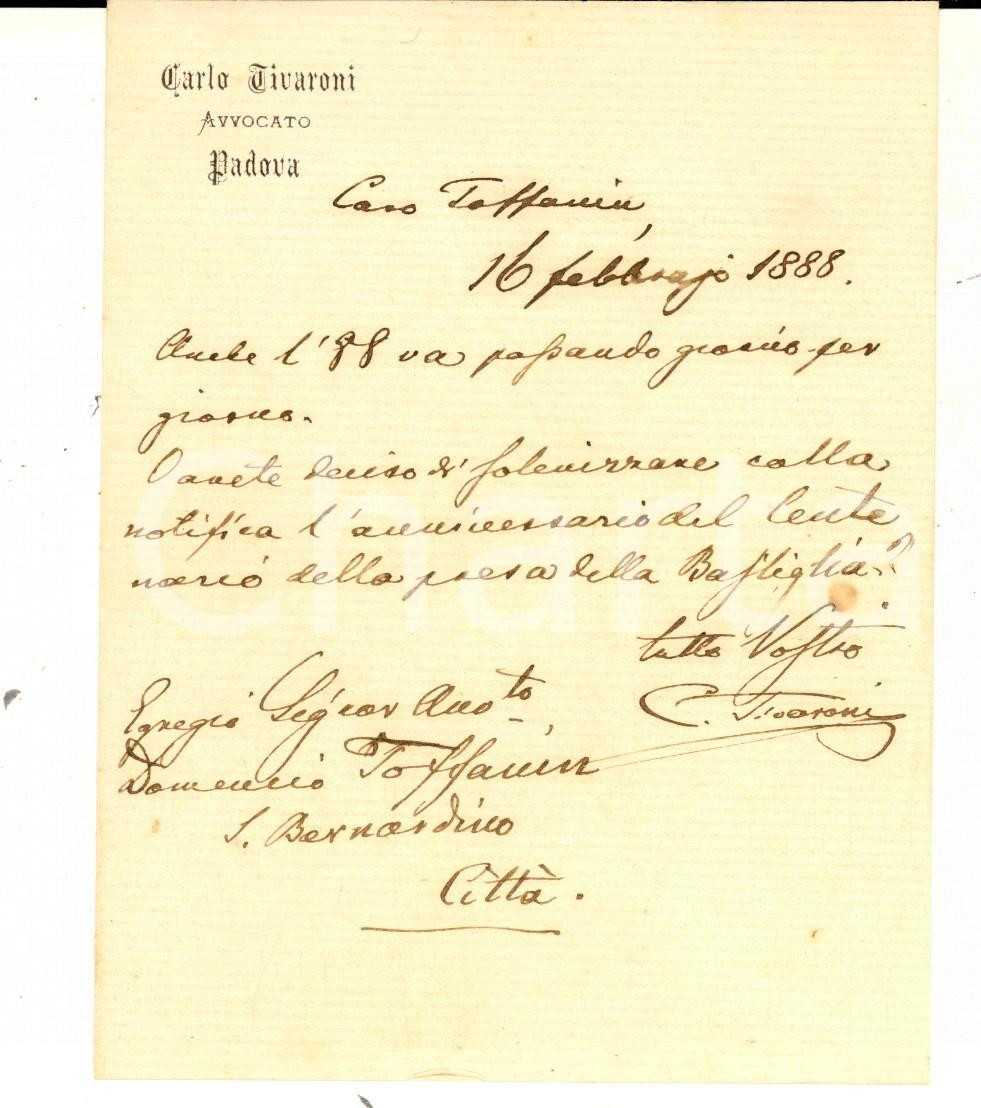 Carlo Tivaroni
AVVOCATO
Padova
Caro Toffanin,
16 febbrajo 1888.
Anche l'88 va passando giorno per
giorno.
O avete deciso di solenizzare colla
notifica l'anniversario del cente
nario della presa della Bastiglia?
tutto Vostro
C. Tivaroni
Egregio Signor Avv.to
Domenico Toffanin
S. Bernardino
Città.